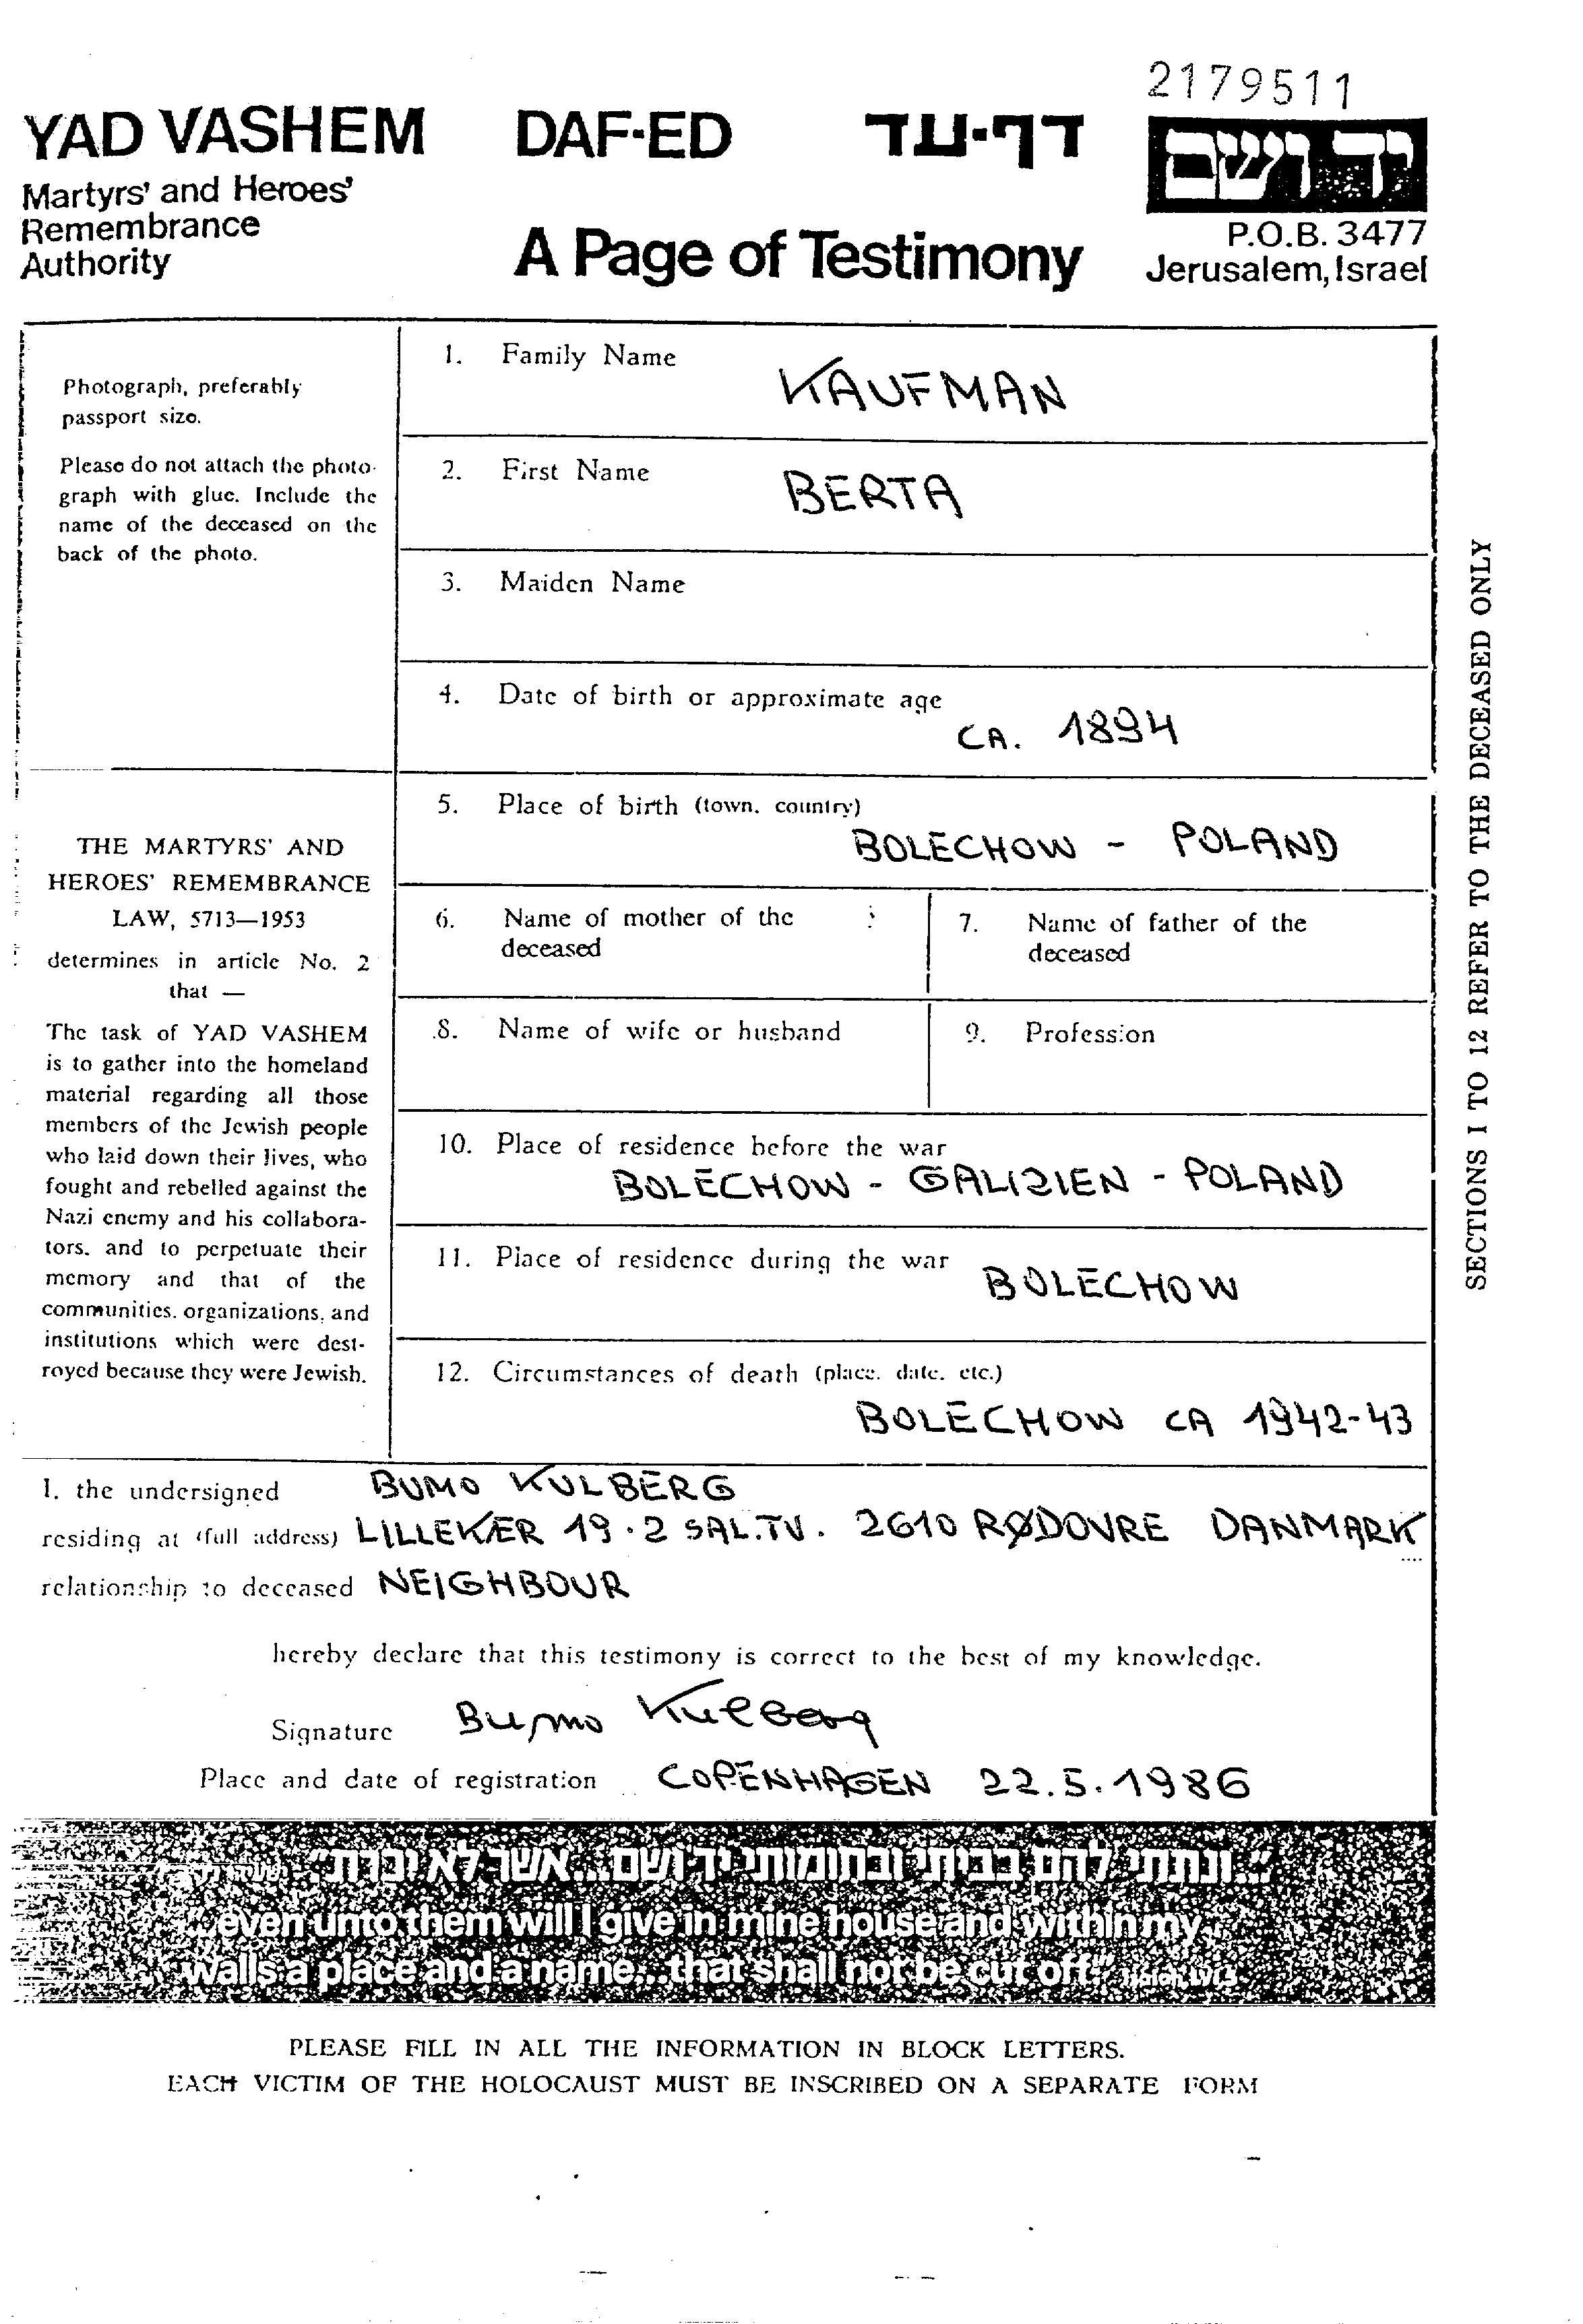 2179511
YAD VASHEM DAF-ED דף-עד
Martyrs' and Heroes'
Remembrance
Authority
A Page of Testimony
יד ושם
P.O.B. 3477
Jerusalem, Israel
Photograph, preferably
passport size.
Please do not attach the photo-
graph with glue. Include the
name of the deceased on the
back of the photo.
THE MARTYRS' AND
HEROES' REMEMBRANCE
LAW, 5713—1953
determines in article No. 2
that —
The task of YAD VASHEM
is to gather into the homeland
material regarding all those
members of the Jewish people
who laid down their lives, who
fought and rebelled against the
Nazi enemy and his collabora-
tors, and to perpetuate their
memory and that of the
communities, organizations, and
institutions which were dest-
royed because they were Jewish.
1. Family Name
KAUFMAN
2. First Name
BERTA
3. Maiden Name
4. Date of birth or approximate age
CA. 1894
5. Place of birth (town, country)
BOLECHOW - POLAND
6. Name of mother of the
deceased
7. Name of father of the
deceased
8. Name of wife or husband
9. Profession
10. Place of residence before the war
BOLECHOW - GALIZIEN - POLAND
11. Place of residence during the war
BOLECHOW
12. Circumstances of death (place, date, etc.)
BOLECHOW CA 1942-43
SECTIONS 1 TO 12 REFER TO THE DECEASED ONLY
I, the undersigned BUMO KULBERG
residing at (full address) LILLEKÆR 19.2 SAL.TV. 2610 RØDOVRE DANMARK
relationship to deceased NEIGHBOUR
hereby declare that this testimony is correct to the best of my knowledge.
Signature Bumo Kulberg
Place and date of registration COPENHAGEN 22.5.1986
"...ונתתי להם בביתי ובחומותי יד ושם... אשר לא יכרת"
"...even unto them will I give in mine house and within my
walls a place and a name...that shall not be cut off." Isaiah, LVI, 5
PLEASE FILL IN ALL THE INFORMATION IN BLOCK LETTERS.
EACH VICTIM OF THE HOLOCAUST MUST BE INSCRIBED ON A SEPARATE FORM